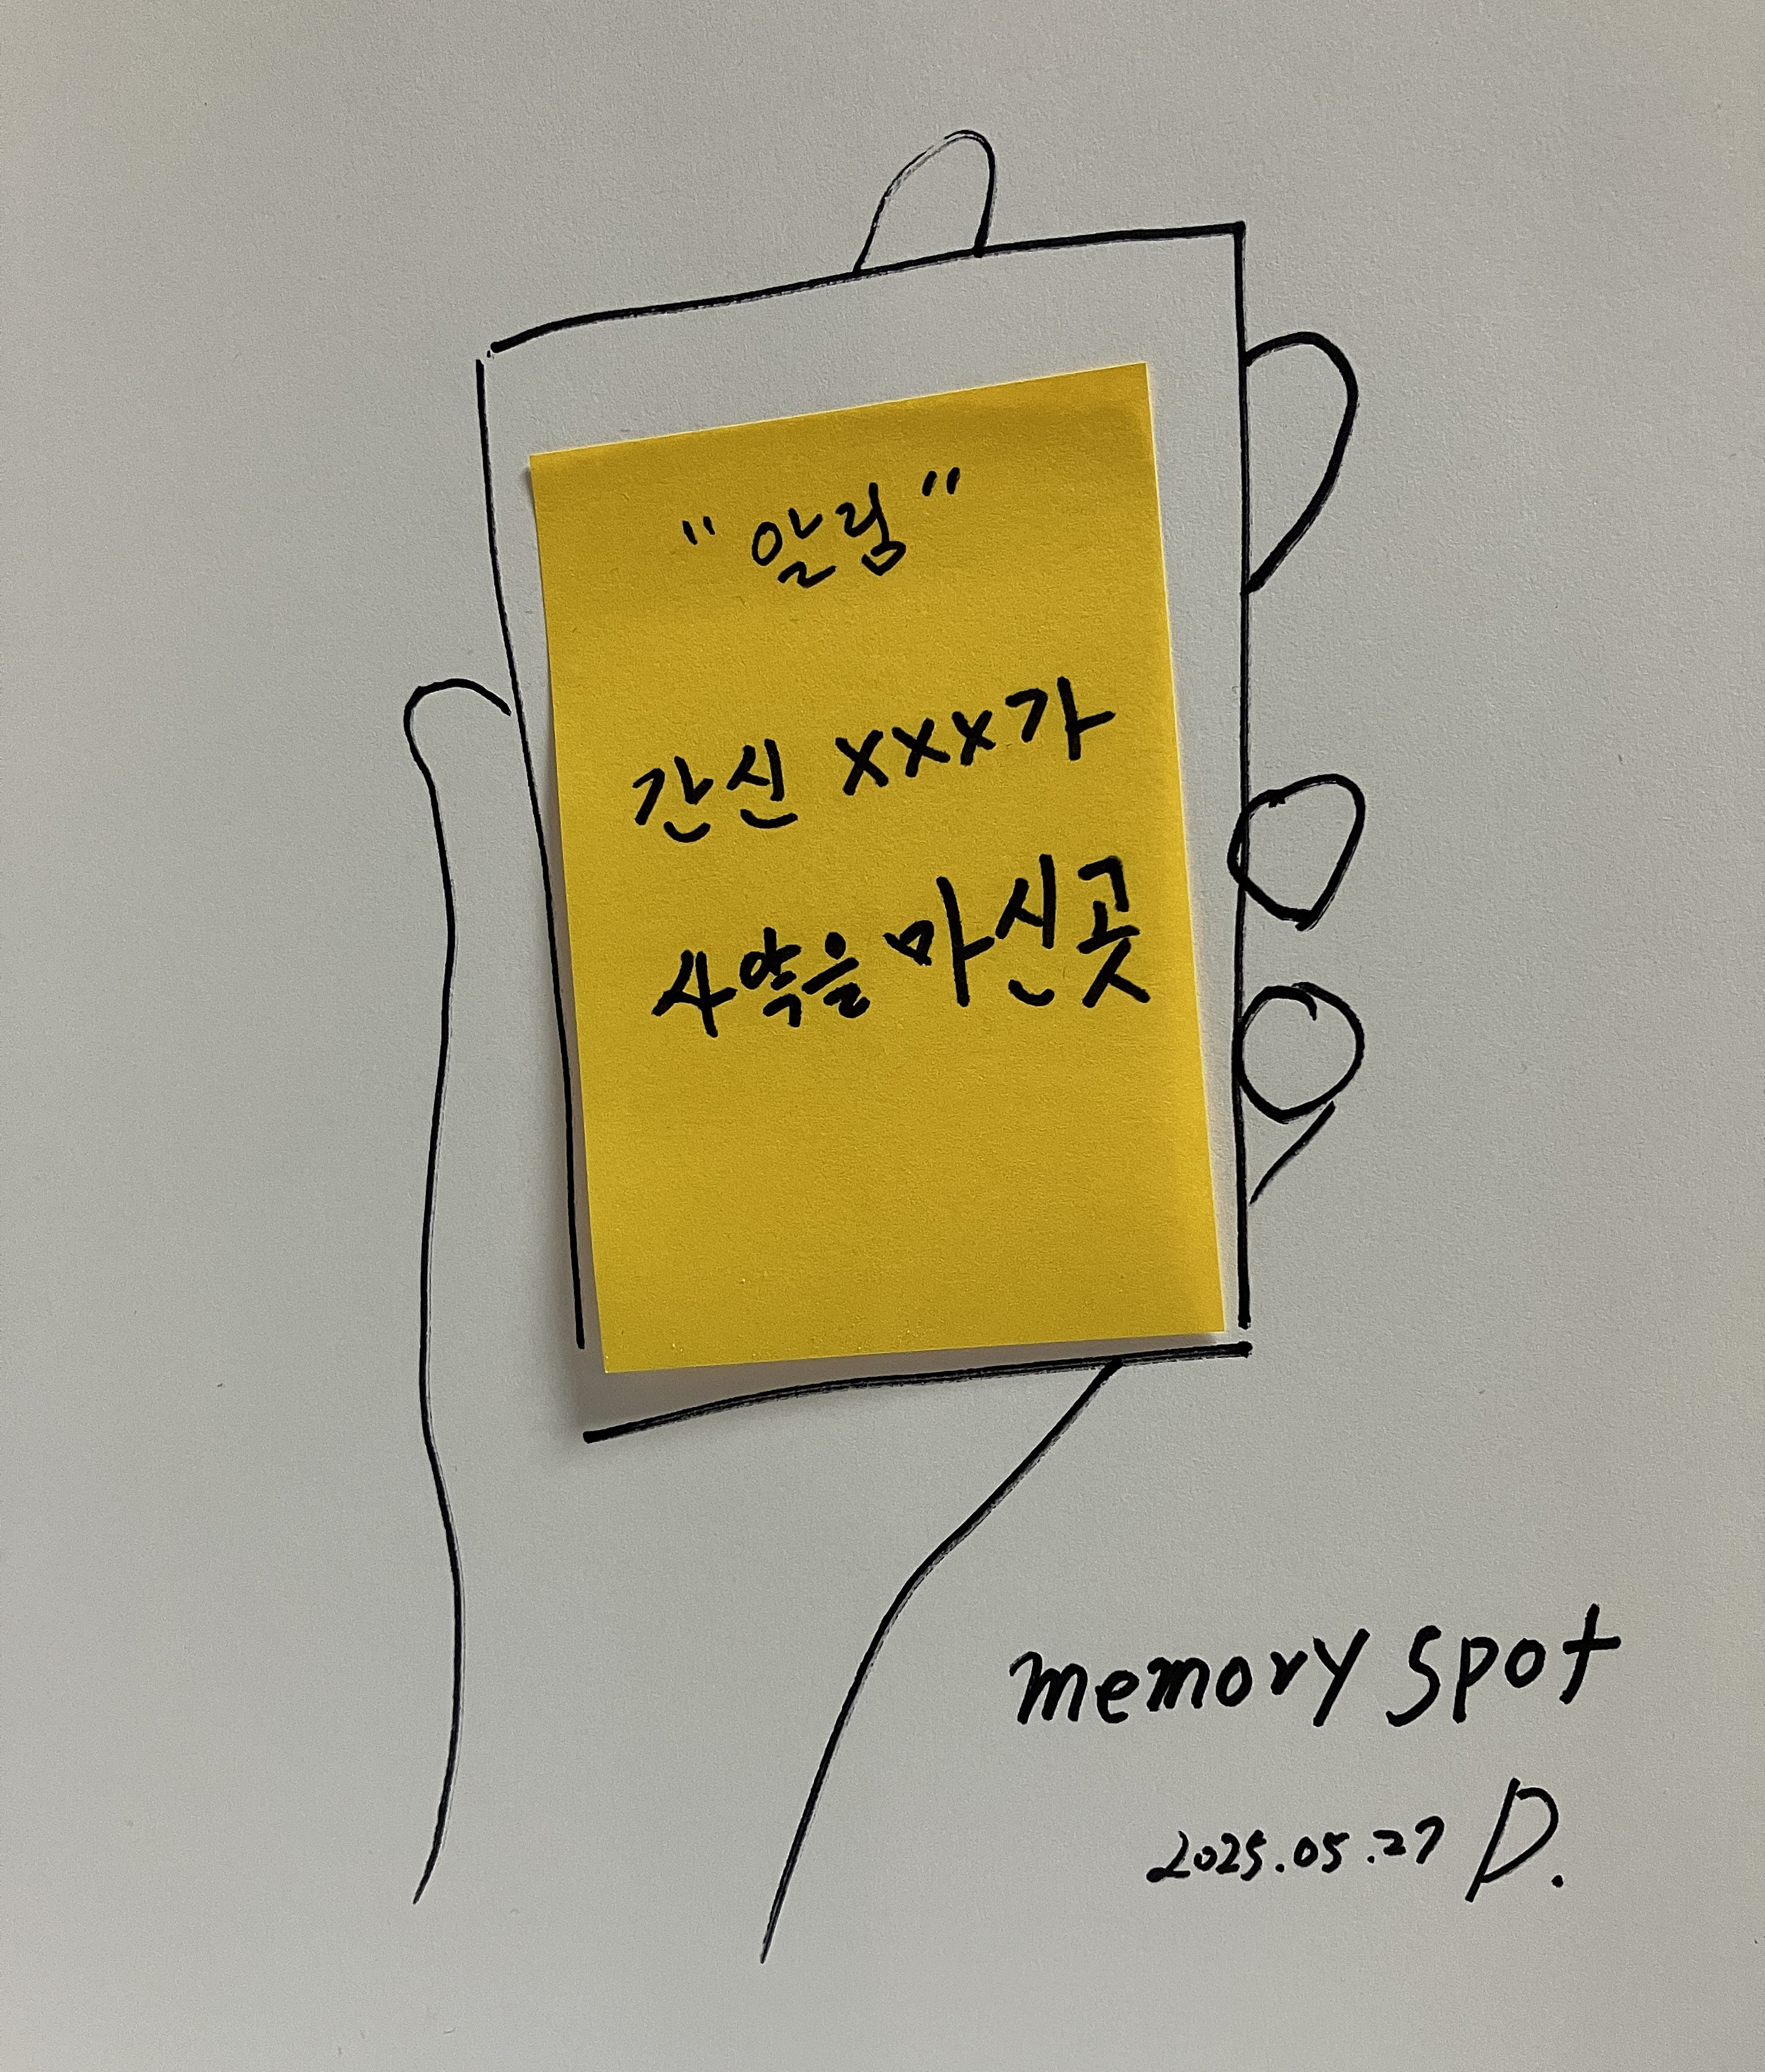 "알림"
간신 xxx가
사약을 마신곳
memory spot
2025.05.27 D.